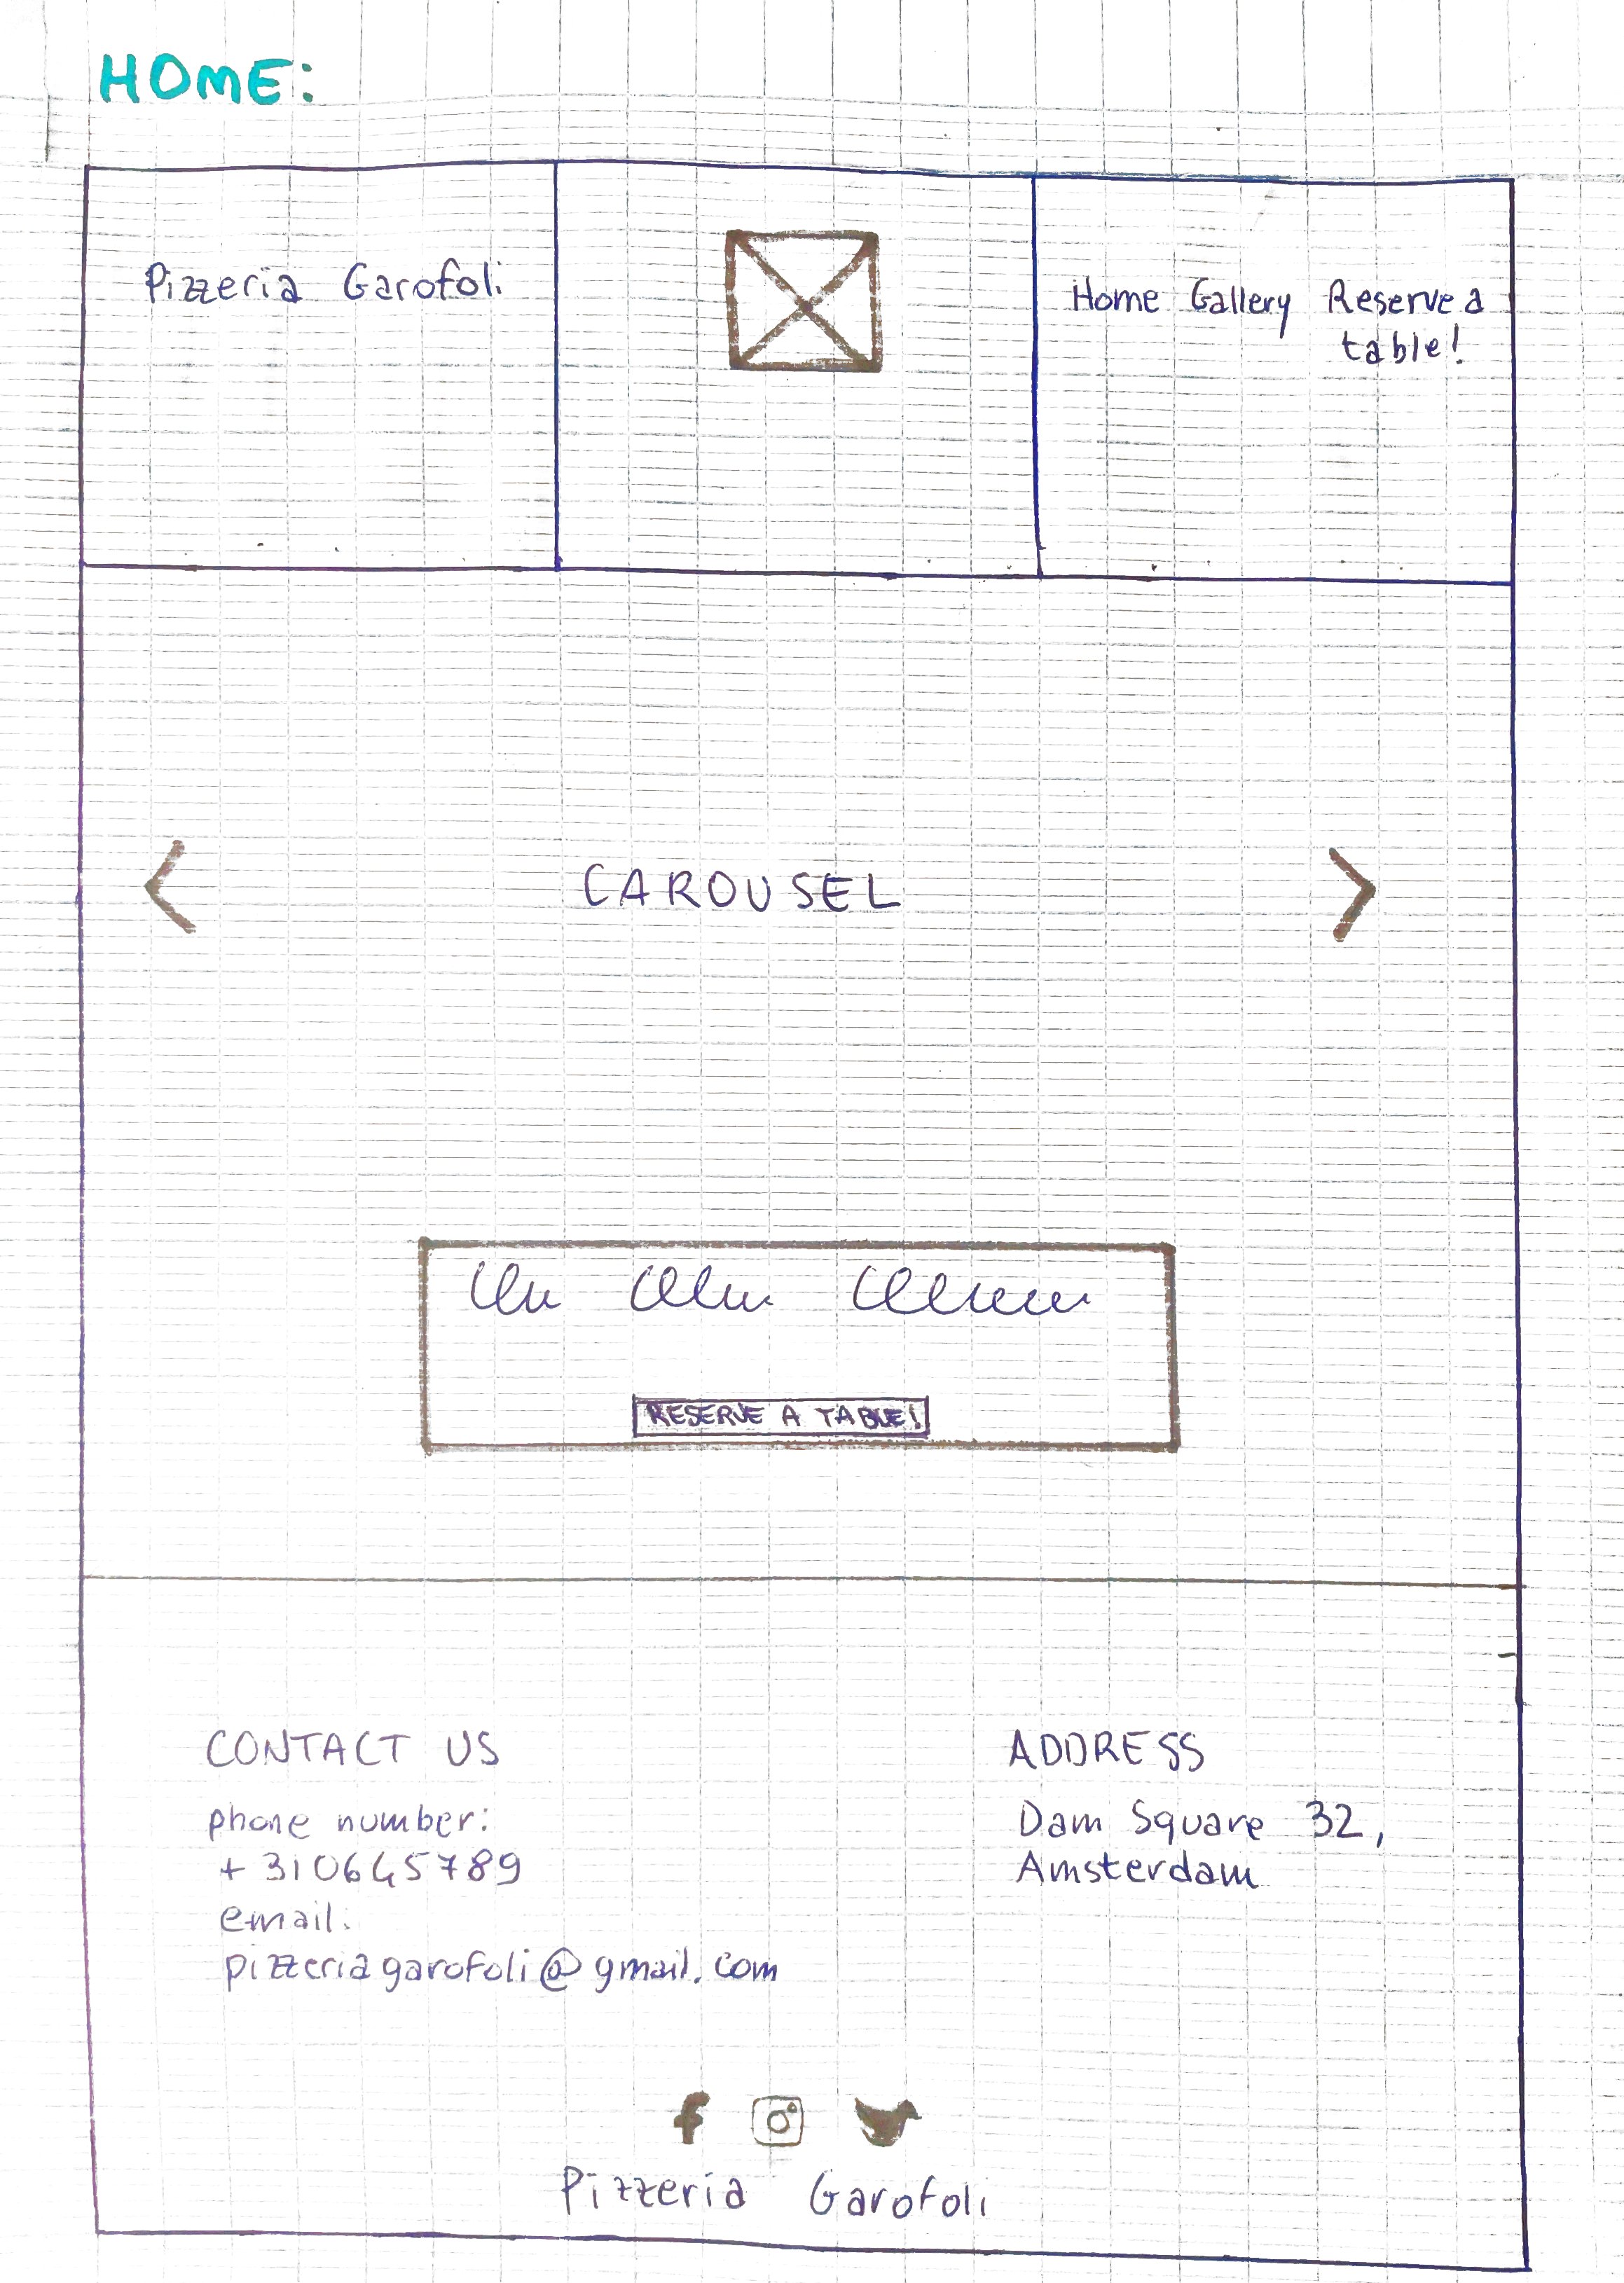 HOME:
Pizzeria Garofoli
Home Gallery Reserve a
table!
< CAROUSEL >
RESERVE A TABLE!
CONTACT US
phone number:
+310645789
email.
pizzeriagarofoli@gmail.com
ADDRESS
Dam Square 32,
Amsterdam
Pizzeria Garofoli